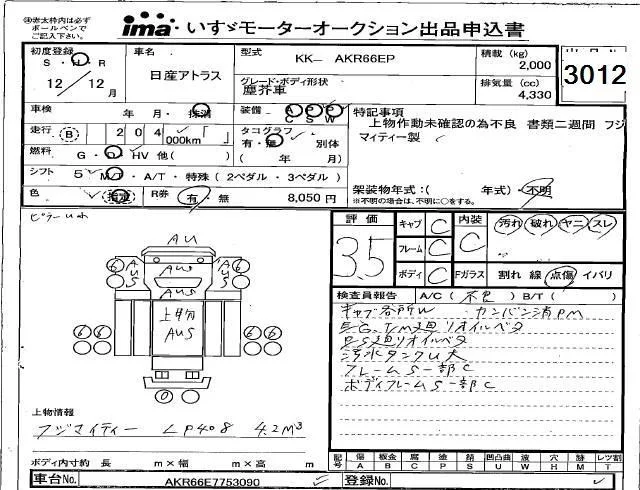 ④赤太枠内は必ず
ボールペンで
ご記入下さい。
ima いすゞモーターオークション出品申込書
初度登録
S・H・R
12/12月
車名
日産アトラス
型式
KK- AKR66EP
グレード・ボディ形状
塵芥車
積載 (kg)
2,000
排気量 (cc)
4,330
3012
車検
年 月・抹消
装備 A P P
C S W
走行 B 204 000km
タコグラフ
有・無 別体
( 年 月)
燃料
G・D・HV 他( )
シフト 5 MT・A/T・特殊(2ペダル・3ペダル)
色 指定 R券 有・無 8,050円
特記事項
上物作動未確認の為不良 書類二週間 フジ
マイティー製
架装物年式:( 年式)・不明
※不明の場合は、不明に○をする。
評価
3.5
キャブ C
フレーム C
ボディ C
内装
C
Fガラス
汚れ・破れ・ヤニ・スレ
割れ 線 点傷 イバリ
検査員報告 A/C( 不良 ) B/T( )
キャブ各所W カンバン消PM
EG、TM廻リオイルベタ
PS廻リオイルベタ
汚水タンクU大
フレームS一部C
ボディフレームS一部C
AU
AUS
AUS
AUS
AUS
上物分
AUS
6 6
6 6
66
66
0
上物情報
フジマイティー LP408 4.2M³
ボディ内寸約 長 m×幅 m×高 m
記号 傷 板金 腐 塗 錆 凹凸曲 波 穴 跡 レツ割
A B C P S U W H M T
車台No. AKR66E7753090
登録No.